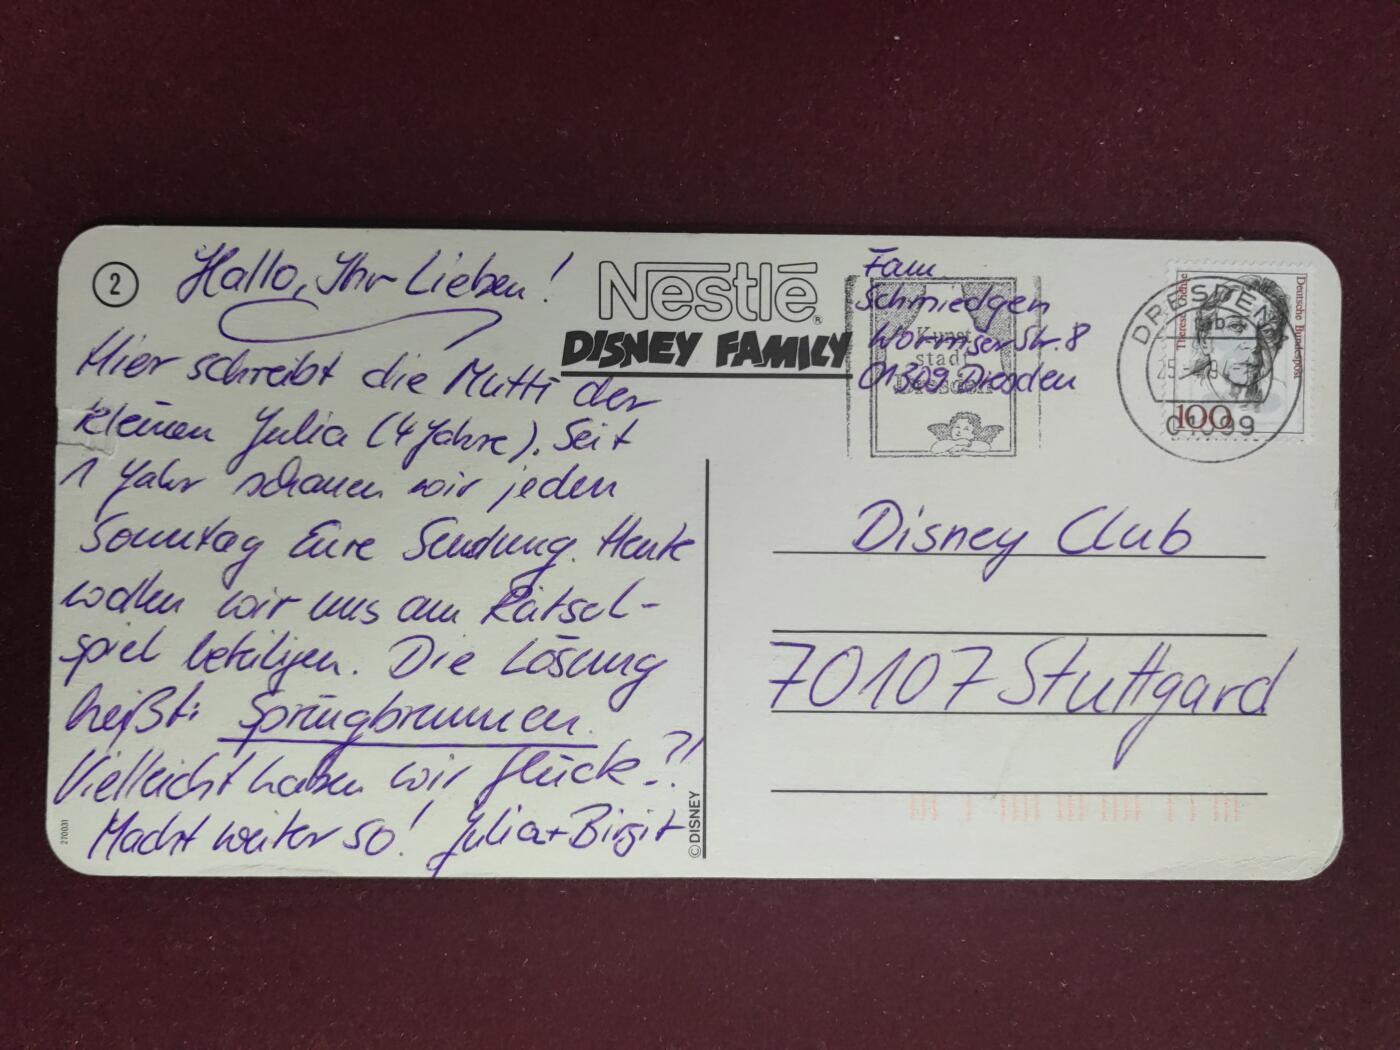 2
Hallo, Ihr Lieben!
Hier schreibt die Mutti der
kleinen Julia (4 Jahre). Seit
1 Jahr schauen wir jeden
Sonntag Eure Sendung. Heute
wollen wir uns am Rätsel-
spiel beteiligen. Die Lösung
heißt: Springbrunnen.
Vielleicht haben wir Glück?!
Macht weiter so! Julia + Birgit
270031
Nestlé®
DISNEY FAMILY
©DISNEY
Fam.
Schmiedgen
Wormser Str. 8
01309 Dresden
Kunst
stadt
Dresden
DRESDEN
01099
Deutsche Bundespost
100
Disney Club
70107 Stuttgard